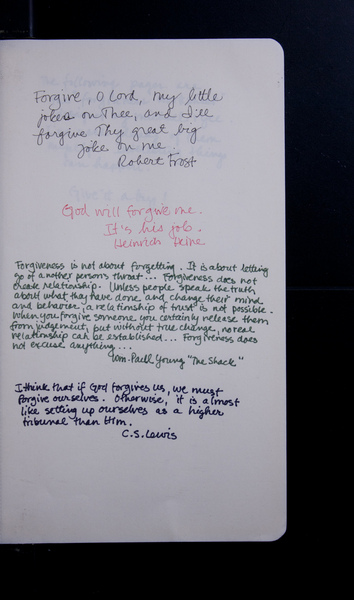 Forgive, O Lord, my little
jokes on Thee, and I'll
forgive Thy great big
joke on me.
Robert Frost
God will forgive me.
It's his job.
Heinrich Heine
Forgiveness is not about forgetting. It is about letting
go of another person's throat... Forgiveness does not
create relationship. Unless people speak the truth
about what they have done and change their mind
and behavior, a relationship of trust is not possible.
When you forgive someone you certainly release them
from judgement, but without true change, no real
relationship can be established... Forgiveness does
not excuse anything...
Wm. Paul Young "The Shack"
I think that if God forgives us, we must
forgive ourselves. Otherwise, it is almost
like setting up ourselves as a higher
tribunal than Him.
C.S. Lewis